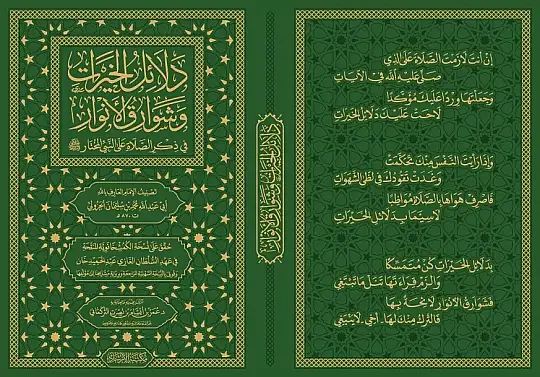 دلائل الخيرات
وشوارق الأنوار
في ذكر الصلاة على النبي المختار ﷺ
تصنيف الإمام العارف بالله
أبي عبد الله محمد بن سليمان الجزولي
ت ٨٧٠ هـ
حقق على نسخة الكمشخانوية المنقحة
في عهد السلطان الغازي عبد الحميد خان
دلائل الخيرات وشوارق الأنوار
إن أنت لازمت الصلاة على الذي
صلى عليه الله في الآيات
وجعلتها وردا عليك مؤكدا
لاحت عليك دلائل الخيرات
وإذا رأيت النفس منك تحكمت
وغدت تقودك في لظى الشهوات
فاصرف هواها بالصلاة مواظبا
لاسيما بدلائل الخيرات
بدلائل الخيرات كن متمسكا
والزم قراءتها تنل ما تبتغي
فشوارق الأنوار لائحة بها
فالترك منك لها۔ أخي۔ لا ينبغي